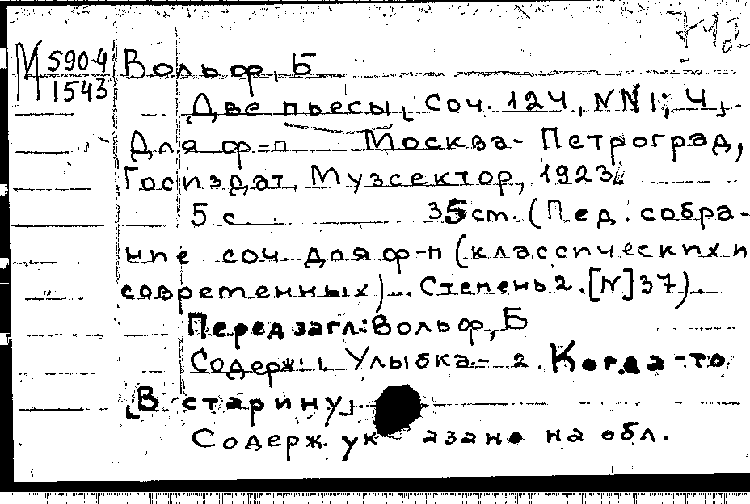 М 590-4
1543
Вольф, Б
Две пьесы, Соч. 124, NN 1; 4,
Для ф-п Москва - Петроград,
Госиздат, Музсектор, 1923.
5 с. 35 cm. (Пед. собра-
ние соч. для ф-п (классических и
современных)... Степень 2. [N] 37).
Перед загл: Вольф, Б
Содерж: 1. Улыбка - 2. Когда-то
[В старину]
Содерж. указано на обл.